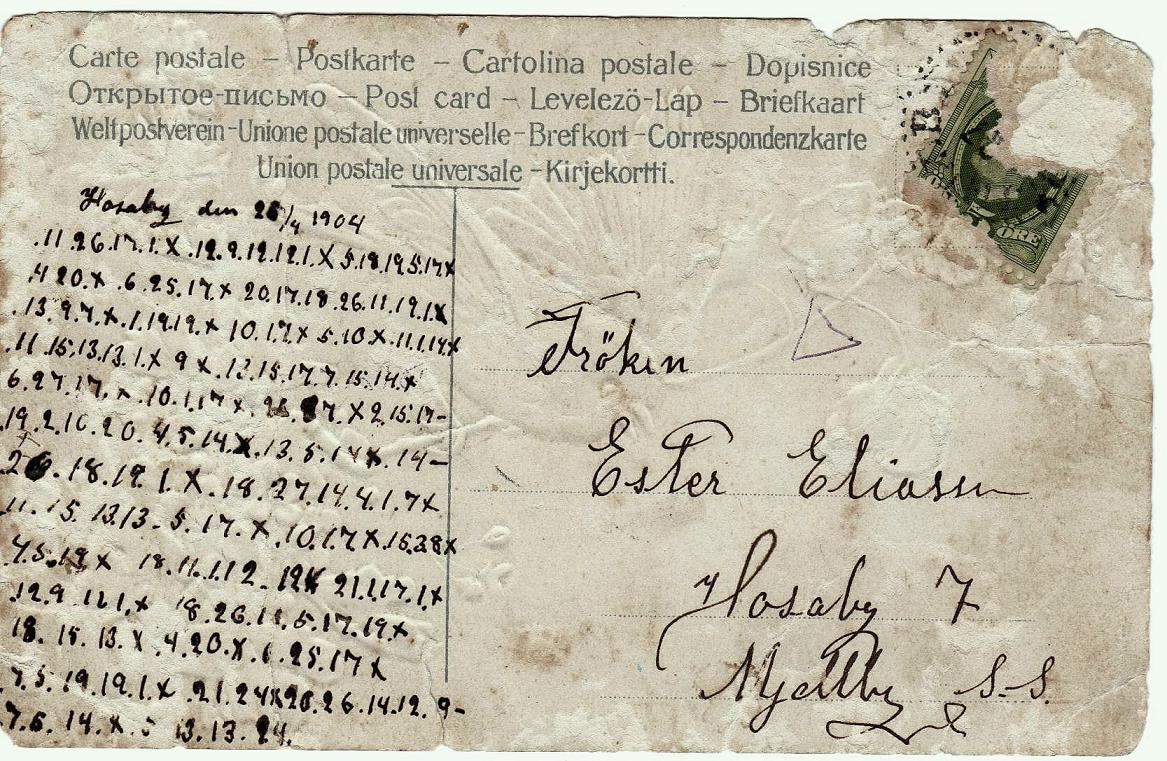 Carte postale – Postkarte – Cartolina postale – Dopisnice
Открытое-письмо – Post card – Levelezö-Lap – Briefkaart
Weltpostverein-Unione postale universelle-Brefkort-Correspondenzkarte
Union postale universale-Kirjekortti.
Hosaby den 25/4 1904
.11.26.17.1.X .12.9.12.12.1.X 5.18.19.5.17.x
.4 20.x .6.25.17.x 20.17.18.26.11.19.1.X
.13.9.7.x .1.19.19.x 10.1.7x 5.10x .11.1.14x
.11.15.13.13.1.x 9 x .12.15.17.7.15.14x
6.27.17.x .10.1.17x X 2.15.17-
19.2.10.20.4.5.14.X.13.5.14x. 14-
.18.19.1.X .18.27.14.4.1.7x
11.15.13.13-5.17.x .10.1.7X.15.28x
.18.11.1.12- 21.1.17.1.x
.12.9 12.1.x 18.26.11.5.17.19x
18.15.13.x .4.20.x .6.25.17x
7.5.19.19.1.x .21.24x 26.14.12.9-
7.5.14.x.5 13.13.24.
5 ÖRE
Fröken
Ester Eliasson
Hosaby 7
Mjellby S.S.